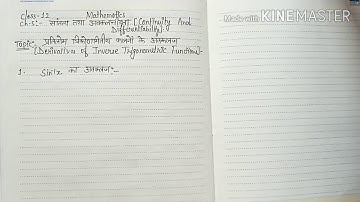 Made with KINEMASTER
Class-12 Mathematics
Ch:5:- सांतत्य तथा अवकलनीयता [Continuity And
Differentiability]:-
Topic:- प्रतिलोम त्रिकोणमितीय फलनों के अवकलज
(Derivative of Inverse Trigonometric Function):-
1. Sin⁻¹x का अवकलज:-